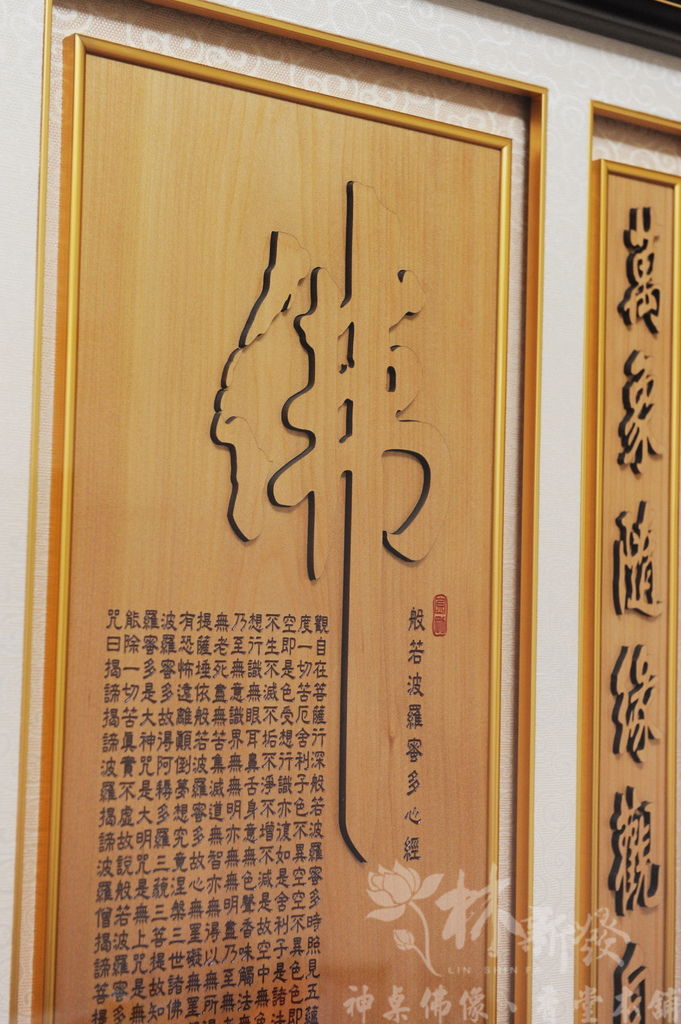 萬象隨緣觀自
佛
般若波羅蜜多心經
觀自在菩薩行深般若波羅蜜多時照見五蘊
度一切苦厄舍利子色不異空空不異色色即
空即是色受想行識亦復如是舍利子是諸法
不生不滅不垢不淨不增不減是故空中無色
想行識無眼耳鼻舌身意無色聲香味觸法無
乃至無意識界無無明亦無無明盡乃至無
無老死盡無苦集滅道無智亦無得以無所得
提薩埵依般若波羅蜜多故心無罣礙無罣
有恐怖遠離顛倒夢想究竟涅槃三世諸佛
波羅蜜多故得阿耨多羅三藐三菩提故知
羅蜜多是大神咒是大明咒是無上咒是無
能除一切苦真實不虛故說般若波羅蜜多
咒曰揭諦揭諦波羅揭諦波羅僧揭諦菩提
林新發
LIN SHIN
神桌佛像、堂本舖